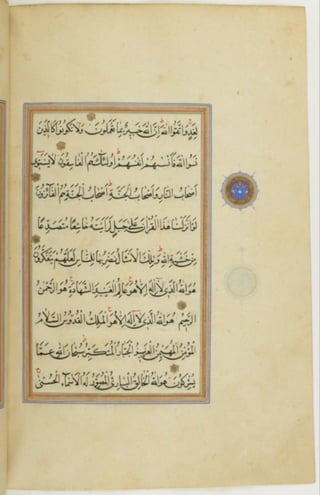 لِغَدٍ وَاتَّقُوا اللَّهَ إِنَّ اللَّهَ خَبِيرٌ بِمَا تَعْمَلُونَ وَلَا تَكُونُوا كَالَّذِينَ
نَسُوا اللَّهَ فَأَنْسَاهُمْ أَنْفُسَهُمْ أُولَئِكَ هُمُ الْفَاسِقُونَ لَا يَسْتَوِي
أَصْحَابُ النَّارِ وَأَصْحَابُ الْجَنَّةِ أَصْحَابُ الْجَنَّةِ هُمُ الْفَائِزُونَ
لَوْ أَنْزَلْنَا هَذَا الْقُرْآنَ عَلَى جَبَلٍ لَرَأَيْتَهُ خَاشِعًا مُتَصَدِّعًا
مِنْ خَشْيَةِ اللَّهِ وَتِلْكَ الْأَمْثَالُ نَضْرِبُهَا لِلنَّاسِ لَعَلَّهُمْ يَتَفَكَّرُونَ
هُوَ اللَّهُ الَّذِي لَا إِلَهَ إِلَّا هُوَ عَالِمُ الْغَيْبِ وَالشَّهَادَةِ هُوَ الرَّحْمَنُ
الرَّحِيمُ هُوَ اللَّهُ الَّذِي لَا إِلَهَ إِلَّا هُوَ الْمَلِكُ الْقُدُّوسُ السَّلَامُ
الْمُؤْمِنُ الْمُهَيْمِنُ الْعَزِيزُ الْجَبَّارُ الْمُتَكَبِّرُ سُبْحَانَ اللَّهِ عَمَّا
يُشْرِكُونَ هُوَ اللَّهُ الْخَالِقُ الْبَارِئُ الْمُصَوِّرُ لَهُ الْأَسْمَاءُ الْحُسْنَى